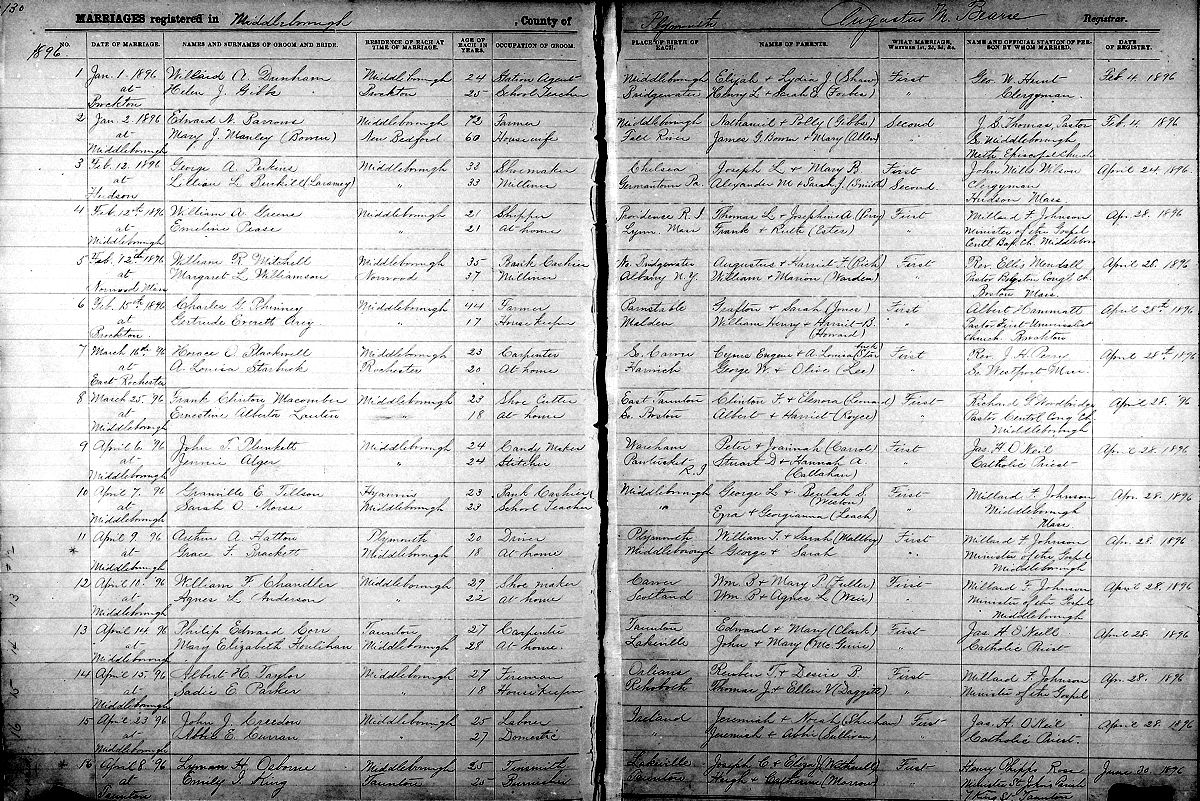 130
MARRIAGES registered in Middleborough, County of Plymouth Augustus M. Bearse Registrar.
1896
NO. DATE OF MARRIAGE. NAMES AND SURNAMES OF GROOM AND BRIDE. RESIDENCE OF EACH AT TIME OF MARRIAGE. AGE OF EACH IN YEARS. OCCUPATION OF GROOM. PLACE OF BIRTH OF EACH. NAMES OF PARENTS. WHAT MARRIAGE, WHETHER 1st, 2d, 3d, &c. NAME AND OFFICIAL STATION OF PERSON BY WHOM MARRIED. DATE OF REGISTRY.
1 Jan. 1. 1896 Willard A. Dunham Middleborough 24 Station Agent Middleborough Elijah & Lydia J. (Shaw) First Geo. W. Hunt Feb 4. 1896
at Helen J. Gibbs Brockton 25 School Teacher Bridgewater Henry L & Sarah (Forbes) " Clergyman
Brockton
2 Jan. 2. 1896 Edward N. Barrows Middleborough 72 Farmer Middleborough Nathaniel & Polly (Gibbs) Second J. S. Thomas, Pastor Feb 4. 1896
at Mary J. Manley (Bowen) New Bedford 60 Housewife Fall River James G. Bowen & Mary (Allen) " So Middleborough
Middleborough Meth Episcopal Church
3 Feb. 12. 1896 George A. Perkins Middleborough 33 Shoemaker Chelsea Joseph L & Mary B First John Mills Wilson April 24. 1896
at Lillian L. (Laramey) " 33 Milliner Germantown Pa. Alexander M & Sarah J. (Smith) Second Clergyman
Hudson Hudson Mass.
4 Feb. 12th 1896 William A. Greene Middleborough 21 Shipper Providence R.I Thomas L & Josephine A (Perry) First Millard F Johnson Apr. 28. 1896
at Emeline Pease " 21 At home Lynn. Mass Frank & Ruth (Estes) " Minister of the Gospel
Middleborough Centl Bap. Ch. Middleboro
5 Feb. 12th 1896 William R. Mitchell Middleborough 35 Bank Cashier W. Bridgewater Augustus & Harriet F (Rich) First Rev. Ellis Mendall April 28. 1896
at Margaret L. Williamson Norwood 37 Milliner Albany N.Y. William & Marion (Warden) " Pastor Boylston Congl Ch
Norwood Mass Boston Mass.
6 Feb. 15th 1896 Charles G. Phinney Middleborough 44 Farmer Barnstable Grafton & Sarah (Jones) First Albert Hammatt April 28th 1896
at Gertrude Everett Arey " 17 Housekeeper Malden William Henry & Harriet B. (Howard) " Pastor First Universalist
Brockton. church. Brockton
7 March 16th 96 Horace O. Blackwell Middleborough 23 Carpenter So. Carver Cyrus Eugene & A. Louisa First Rev. J. H. Perry April 28th 1896
at A. Louisa Starbuck Rochester 20 At home Harwich George W. & Olive (Lee) " So. Westport Mass
East Rochester
8 March 25. 96 Frank Clinton Macomber Middleborough 23 Shoe Cutter East Taunton Clinton F. & Elenora (Leonard) First Richard G Woodbridge April 28. 96
at Ernestine Alberta " 18 At home So. Boston Albert & Harriet (Royce) " Pastor Central Cong Ch
Middleborough Middleborough
9 April 6. 96 John T. Plunkett Middleborough 24 Candy Maker Wareham Peter & Joannah (Carrol) First Jas. H. O'Neil April 28. 1896
at Jennie Alger " 24 Stitcher Pawtucket R.I Stuart D & Hannah A (Callahan) " Catholic Priest
Middleborough
10 April 7. 96 Granville E. Tillson Hyannis 23 Bank Cashier Middleborough George L & Beulah S (Weston) First Millard F Johnson Apr. 28. 1896
at Sarah O. Morse Middleborough 23 School Teacher " Ezra & Georgianna (Leach) " Middleborough
Middleborough Mass
11 April 9. 96 Arthur A Hatton Plymouth 20 Driver Plymouth William T. & Sarah (Maltby) First Millard F Johnson Apr. 28. 1896
* at Grace F. Brackett Middleborough 18 At home Middleborough George & Sarah " Minister of the Gospel
Middleborough Middleborough
12 April 10. 96 William F. Chandler Middleborough 29 Shoe maker Carver Wm B & Mary P. (Fuller) First Millard F. Johnson April 28. 1896
at Agnes L. Anderson " 22 At home Scotland Wm P & Agnes L (Weir) " Minister of the Gospel
Middleborough Middleborough
13 April 14. 96 Philip Edward Corr Taunton 27 Carpenter Taunton Edward & Mary (Clark) First Jas H O'Neil April 28. 1896
at Mary Elizabeth Houlihan Middleborough 28 At home. Lakeville John & Mary (McGuire) " Catholic Priest
Middleborough
14 April 15. 96 Albert H. Taylor Middleborough 27 Fireman Orleans Reuben T & Desire B. First Millard F. Johnson Apr. 28. 1896
at Sadie E. Parker " 18 Housekeeper Rehoboth Thomas J. & Ellen V (Daggett) " Minister of the Gospel
Middleborough
15 April 23 96 John J. Creedon Middleborough 25 Laborer Ireland Jeremiah & Norah (Sheehan) First Jas. H. O'Neil April 28. 1896
at Abbie E. Curran " 27 Domestic " Jeremiah & Abbie (Sullivan) " Catholic Priest.
Middleborough
* 16 April 8. 96 Lyman H. Osborne Middleborough 25 Tinsmith Lakeville Joseph C & Eliza J (Witherell) First Henry Phipps Ross June 30. 1896
at Emily J. King Taunton 25 Burnisher Taunton Hugh & Catharine (Morrow) " Minister St. Johns Parish
Taunton Taunton